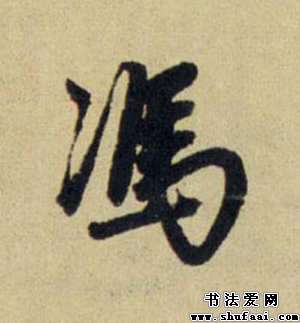 馮
书法爱网
www.shufaai.com